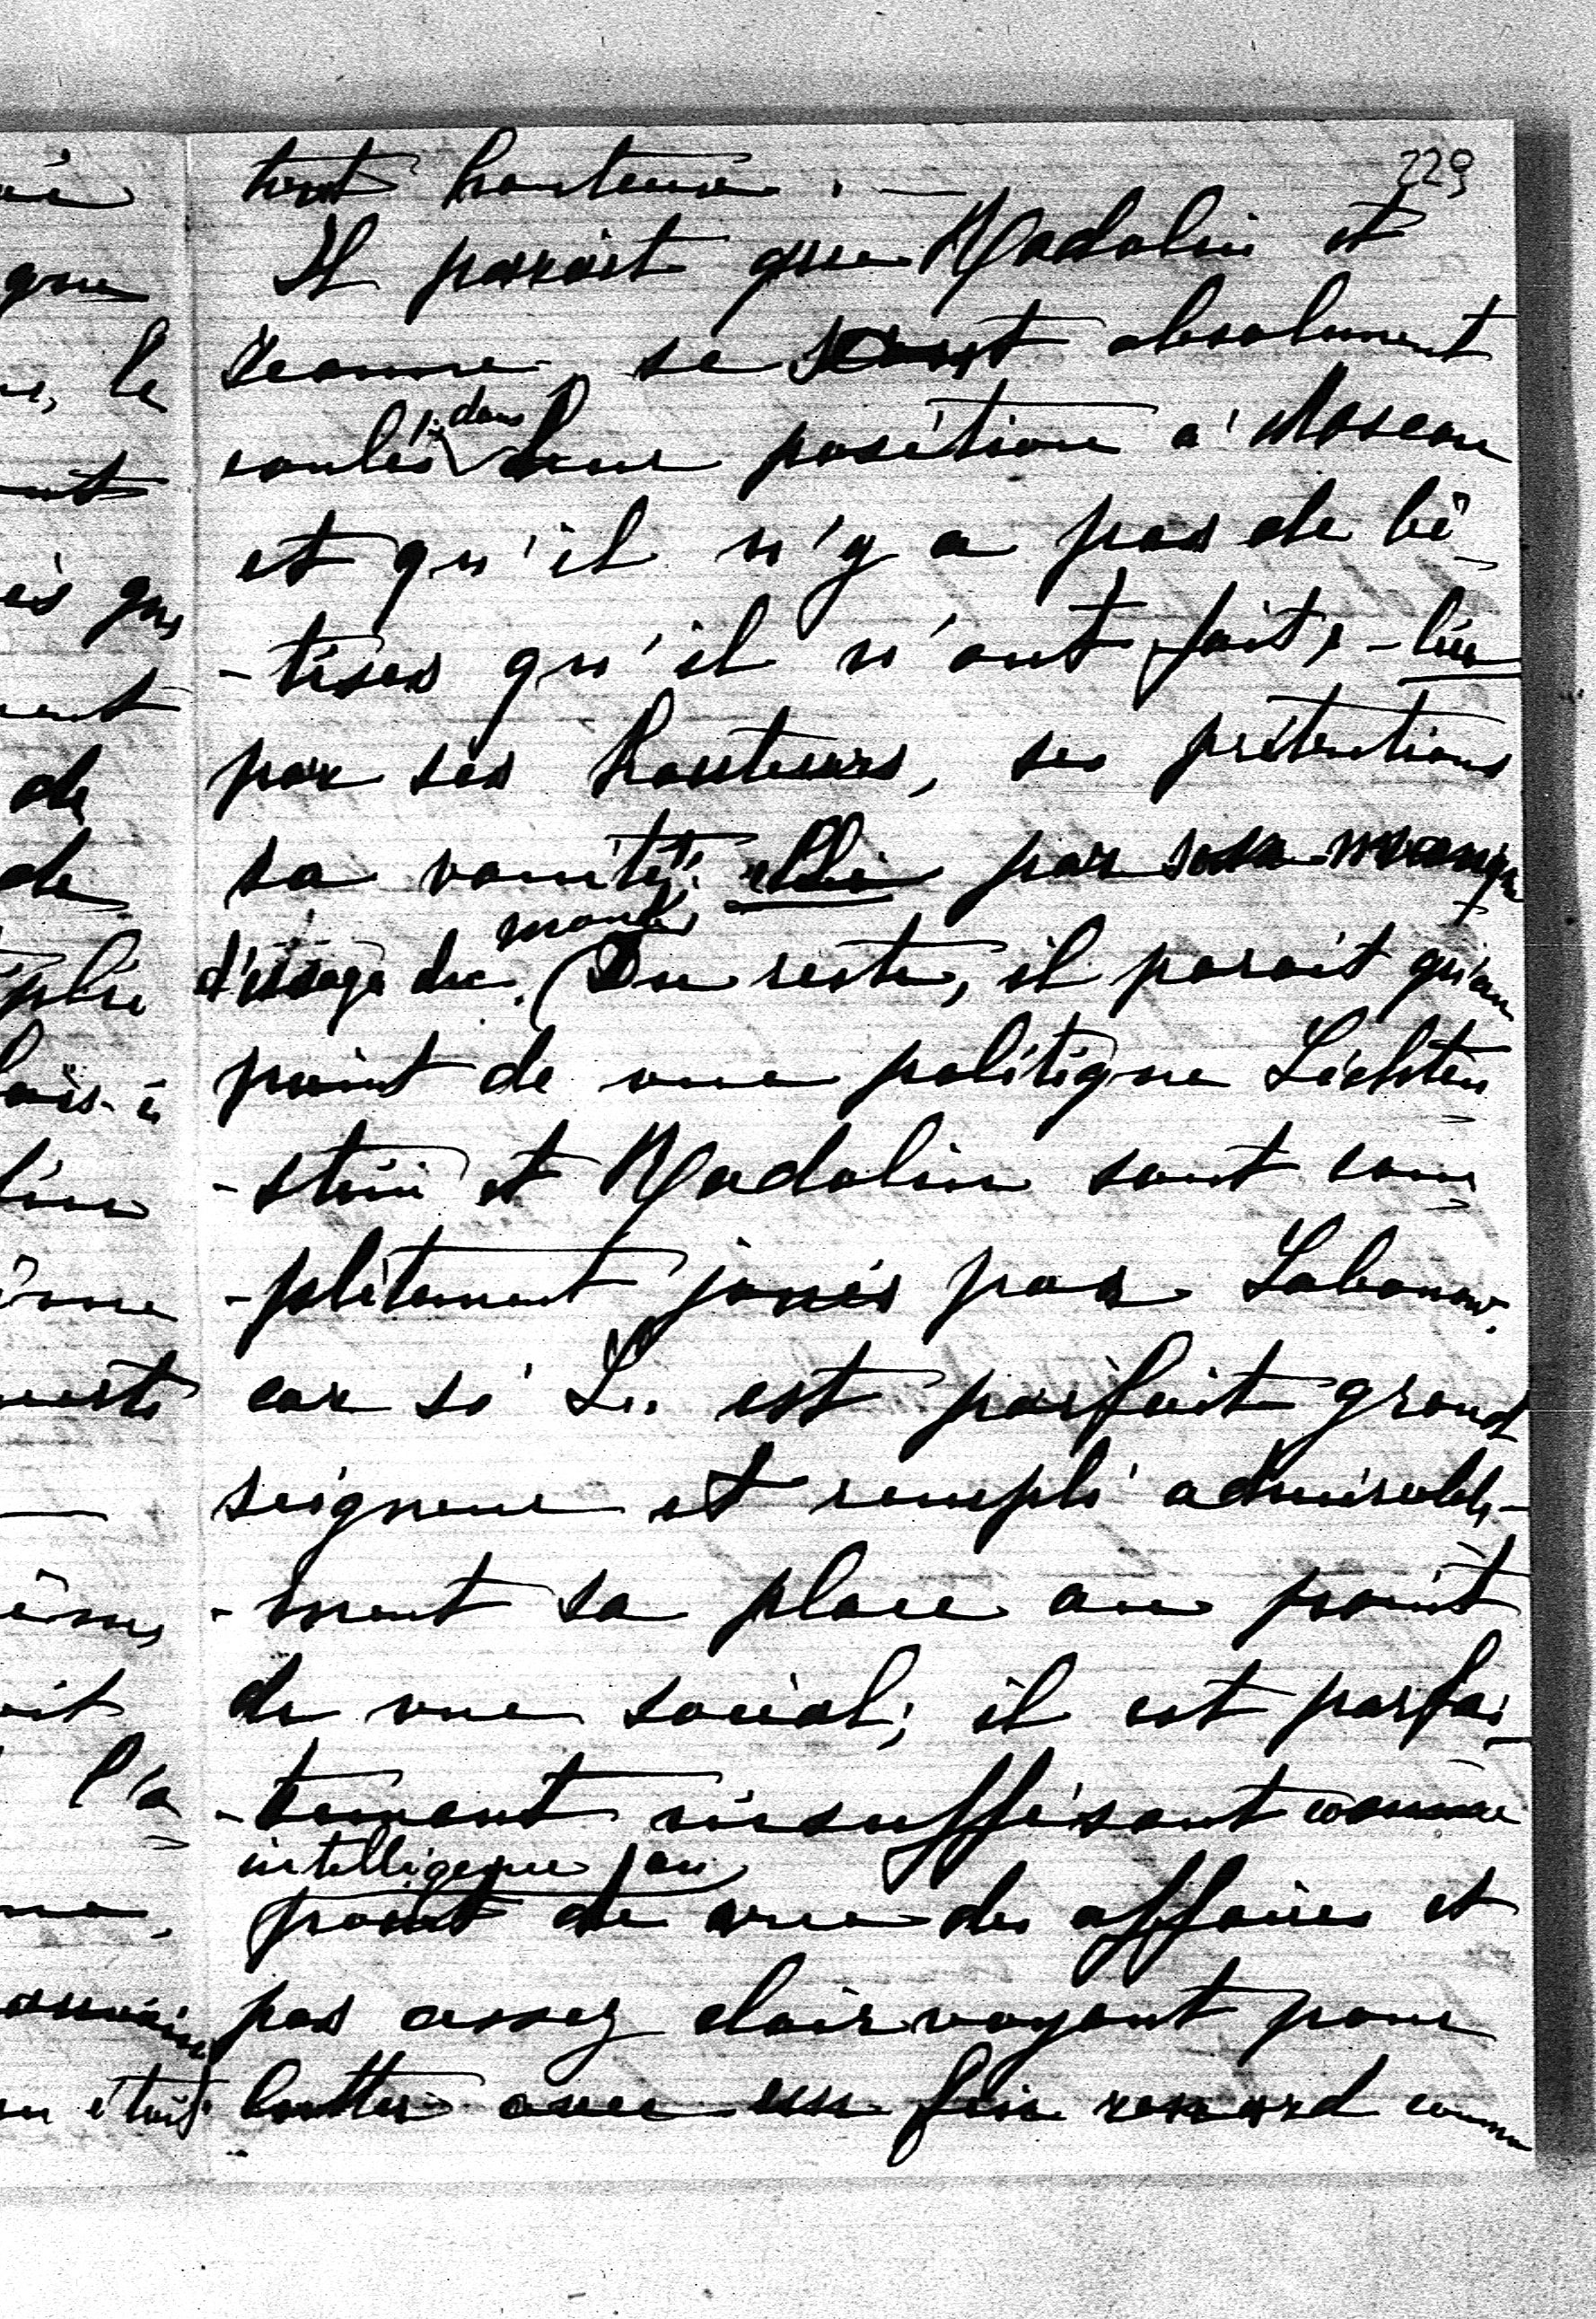 229
tout honteux. —
Il paroit que Madolin et
Jeanne se sont absolument
coulés dans leur position à Moscou
et qu'il n'y a pas de bê-
-tises qu'il n'ont fait, - lui
par ses hauteurs, ses prétentions
sa vanité; elle par son manque
d'usage du monde. (Du reste, il paroit qu'au
point de vue politique Lichten
-stein et Madolin sont com
-plètement joués par Labanow.
car si L. est parfait grand
seigneur et rempli admirable-
-ment sa place au point
de vue social; il est parfai-
-tement insuffisant comme
intelligence au
point de vue des affaires et
pas assez clairvoyant pour
lutter avec un fin renard comme